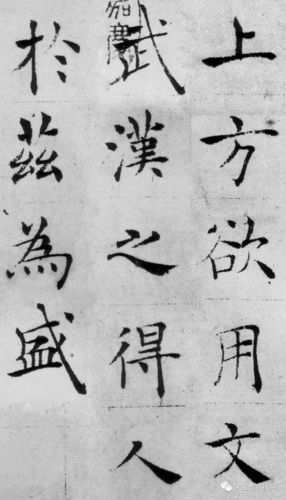 上方欲用文
武漢之得人
於茲為盛